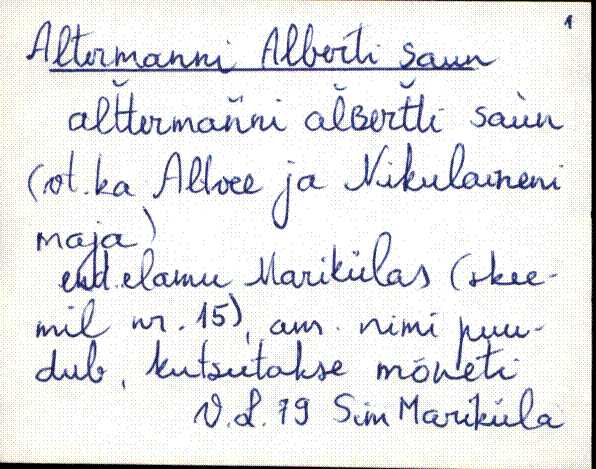 1
Altermanni Alberti saun
al̆t̆termañni ălBert̆ti saùn
(vt. ka Allvee ja Nikulaineni
maja)
end. elamu Marikülas (skee-
mil nr. 15), am. nimi puu-
dub, kutsutakse mõneti
V.L. 79 Sim Mariküla